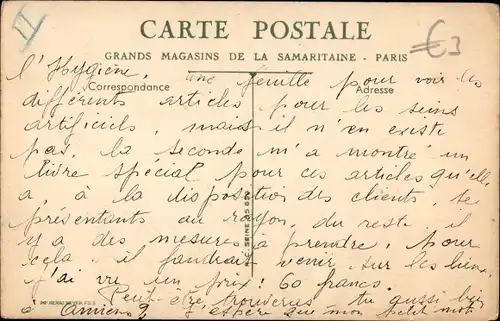 €3
CARTE POSTALE
GRANDS MAGASINS DE LA SAMARITAINE - PARIS
Correspondance
Adresse
l'Hygiène, une feuille pour voir les
différents articles pour les seins
artificiels, mais il n'en existe
pas, la seconde m'a montré un
livre spécial pour ces articles qu'elle
a, à la disposition des clients, se
présentants au rayon, du reste il
y a des mesures à prendre, pour
cela, il faudrait venir sur les lieux,
j'ai vu un prix: 60 francs.
Peut-être trouveras tu aussi bien
à Amiens? J'espère que mon petit mot
R.C. SEINE
IMP. HENRI MEYER, P.D.S